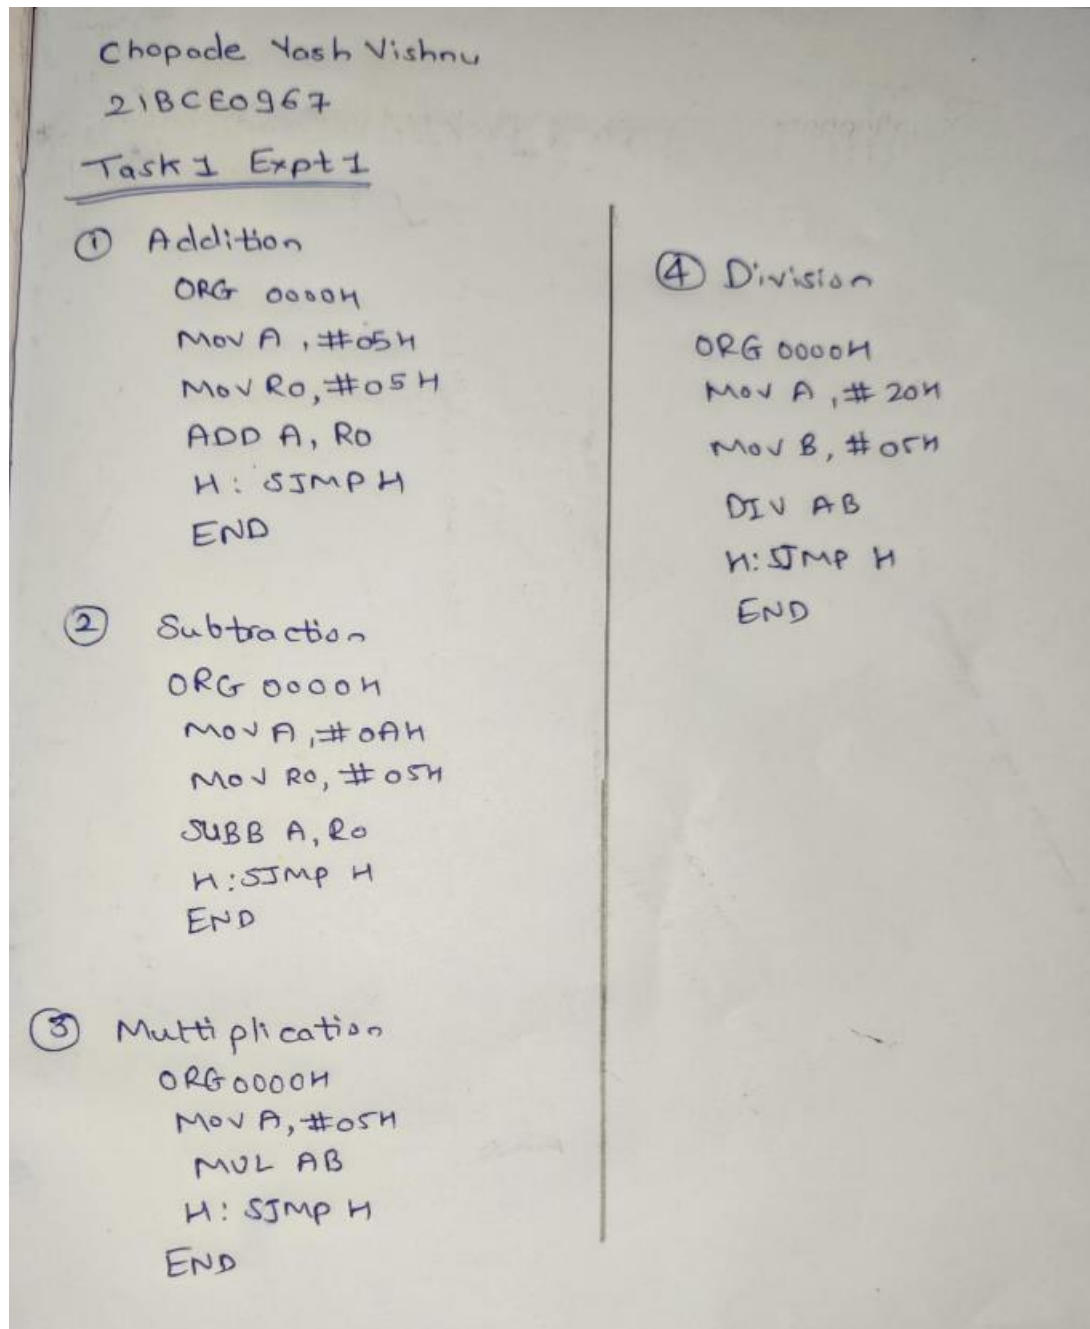 Chopade Yash Vishnu
21BCE0967
Task 1 Expt 1
① Addition
ORG 0000H
MOV A, #05H
MOV R0, #05H
ADD A, R0
H: SJMP H
END
② Subtraction
ORG 0000H
MOV A, #0AH
MOV R0, #05H
SUBB A, R0
H: SJMP H
END
③ Multiplication
ORG 0000H
MOV A, #05H
MUL AB
H: SJMP H
END
④ Division
ORG 0000H
MOV A, #20H
MOV B, #05H
DIV AB
H: SJMP H
END